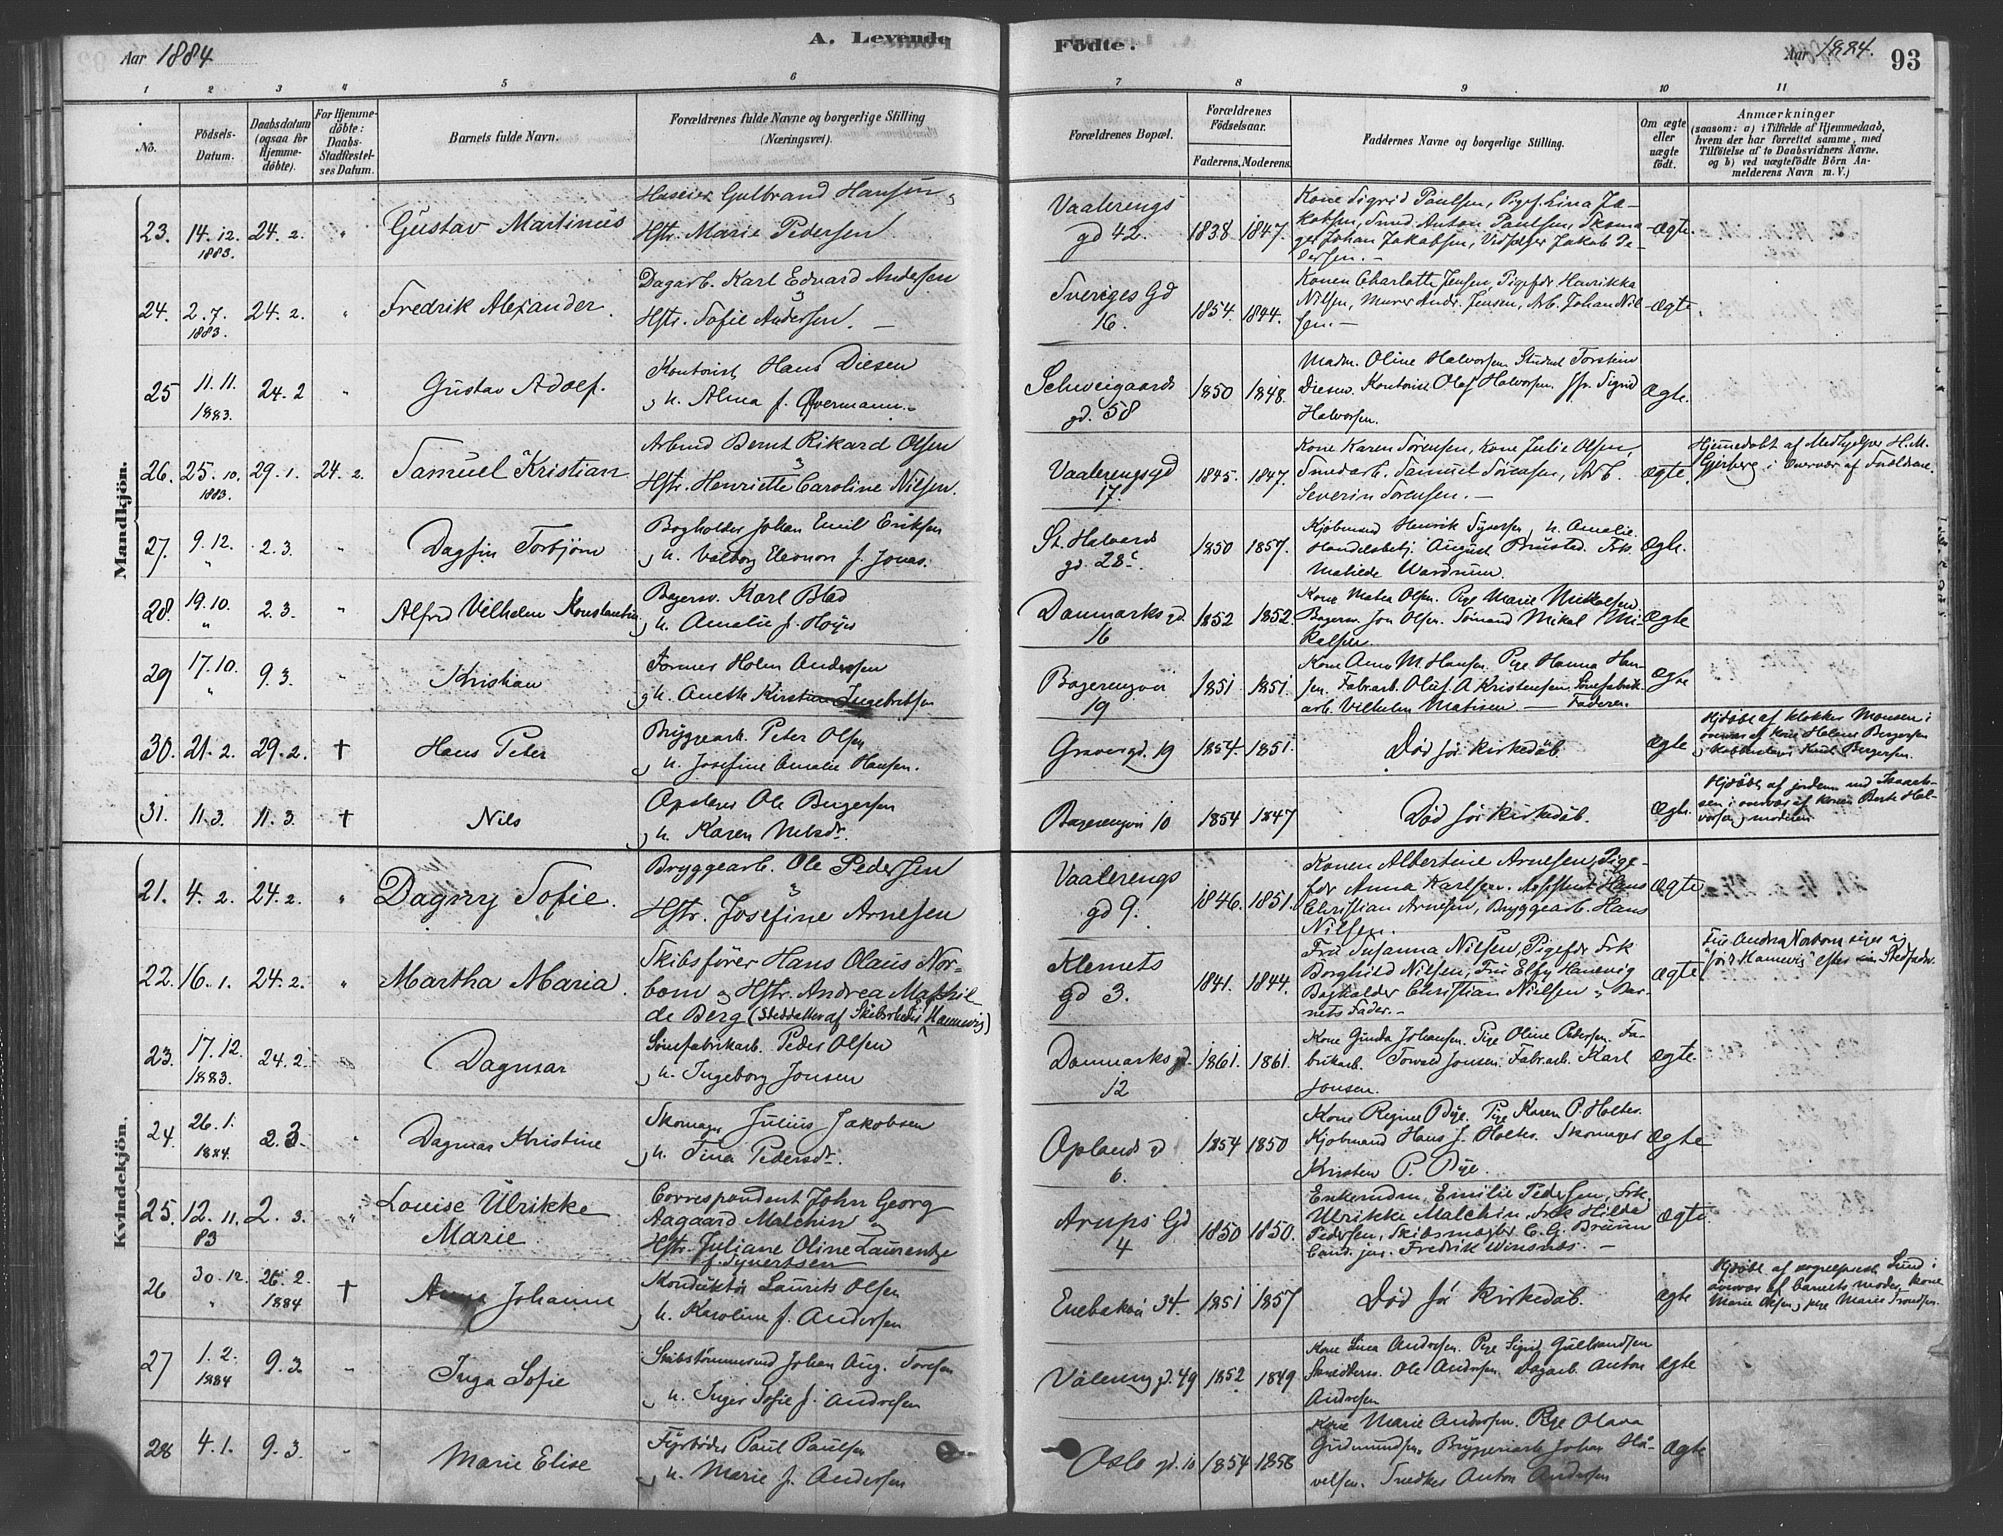 Aar 1884
A. Levende
Födte.
Aar 1884.
93
1 2 3 4 5 6 7 8 9 10 11
No.
Födsels-
Datum.
Daabsdatum
(ogsaa for
Hjemme-
döbte).
For Hjemme-
döbte:
Daabs-
Stadfæstel-
ses Datum.
Barnets fulde Navn.
Forældrenes fulde Navne og borgerlige Stilling
(Næringsvei).
Forældrenes Bopæl.
Forældrenes
Födselsaar.
Faderens. Moderens.
Faddernes Navne og borgerlige Stilling.
Om ægte
eller
uægte
födt.
Anmærkninger
(saasom: a) i Tilfælde af Hjemmedaab,
hvem der har forrettet samme, med
Tilföielse af to Daabsvidners Navne,
og b) ved uægtefödte Börn An-
melderens Navn m. V.)
Mandkjön.
23. 14.12. 1883. 24.2. " Gustav Martinus
Gulbrand Hansen
Hstr. Marie Pedersen
Vaalerengs
gd 42.
1838. 1847.
Kone Sigrid Paulsen, Pigef. Lina Ja-
kobsen, Smed Anton Paulsen, Skoma
ger Johan Jakobsen, Jakob Pe-
dersen. -
Ægte.
24. 2.7. 1883. 24.2. " Fredrik Alexander.
Dagarb. Karl Edvard Andersen
&
Hstr. Sofie Andersen. -
Sveriges Gd
16.
1854. 1844.
Konen Charlotte Jensen, Pigefdr Henrikka
Nilsen, Murer Andr. Jensen, Arb. Johan Nil-
sen. -
Ægte.
25 11.11. 1883. 24.2 " Gustav Adolf.
Kontorist Hans Diesen
& H. Alma f. Overmann.
Schweigaards
gd. 58
1850 1848.
Madm. Oline Halvorsen Student Torstein
Diesen. Kontorist Olaf Halvorsen. Jfr. Sigrid
Halvorsen.
Ægte.
26. 25.10. 1883. 29.1. 24.2. Samuel Kristian
Bernt Rikard Olsen
&
Hstr. Henriette Caroline Nilsen.
Vaalerengsgd
17
1845. 1847.
Kone Karen Sörensen, Kone Julie Olsen,
Smedarb. Samuel Sörensen, Arb.
Severin Sörensen. -
Ægte.
Hjemmedöbt af Medhjælper H.M.
Gjerberg i Overvær af Forældrene.
27. 9.12. " 2.3. " Dagfin Torbjörn
Bogholder Johan Emil Eriksen
& H. Valborg Eleonora f. Jonas.
St. Halvards
gd. 28c.
1850 1857.
Kjöbmand Henrik Syversen & H. Amalie.
Handelsbetj. August Brustad. Frk.
Matilde Wardrum.
Ægte.
28. 19.10. " 2.3. " Alfred Vilhelm Konstantin
Bagersv. Karl Blad
& H. Amalie f. Höyer
Danmarks gd.
16
1852 1852.
Kone Matea Olsen. Pige Marie Mikalsen.
Bagersv. Jon Olsen. Sömand Mikal Mi-
kalsen.
Ægte
29 17.10. " 9.3. " Kristian
Former Holm Andersen
& H. Anette Kirstine Ingebretsen
Bagerengvei
19
1851. 1851.
Kone Anne M. Hansen. Pige Hanna Han-
sen. Fabr.arb. Oluf A Kristensen. Sönefabrik-
arb. Vilhelm Matisen. - Faderen
Ægte
30. 21.2. 29.2. † Hans Peter
Bryggearb. Peter Olsen
& H. Josefine Amalie Hansen.
Graver gd. 19
1854. 1851.
Död för kirkedåb.
Ægte
Hjdöbt af klokker Monsen i
overvær af kone Helene Bergersen
& Karl Bergersen.
31. 11.3. 11.3. † Nils
Ole Bergersen
& H. Karen Nilsdr.
Bagerengvei 10
1854 1847
Död för kirkedåb.
Ægte.
Hjdöbt af jordem. Isaach-
sen i overvær af konen Berte Hal-
vorsen, moderen
Kvindekjön.
21. 4.2. 24.2. " Dagny Sofie.
Bryggearb. Ole Pedersen
&
Hstr. Josefine Arnesen
Vaalerengs
gd 9.
1846. 1851.
Konen Albertine Arnesen, Pige-
fdr Anna Karlsen. Assistent Hans
Christian Arnesen, Bryggearb. Hans
Nilsen.
Ægte
22. 16.1. 24.2. " Martha Maria.
Skibsförer Hans Olaus Nor-
bom & Hstr. Andrea Mathil-
de Berg (Steddatter af Skibsreder Hannevig)
Klemets
gd 3.
1841. 1844.
Fru Susanna Nilsen, Pigefdr Frk
Borghild Nilsen, Fru Elfy Hanevig
Bogholder Christian Nielsen & Bar-
nets Fader. -
Ægte
Fru Andrea Norbom siges og
"född Hannevig" efter Stedfader.
23. 17.12. 1883. 24.2. " Dagmar
Sönefabrikarb. Peder Olsen
& H. Ingeborg Jonsen
Danmarks gd.
12
1861. 1861.
Kone Gunda Johansen. Pige Oline Petersen. Fa-
brikarb. Torvald Jonsen. Fabr.arb. Karl
Jonsen.
Ægte.
24. 26.1. 1884. 2.3. " Dagmar Kristine
Skomager Julius Jakobsen
& H. Tina Pedersdr.
Oplands gd
6.
1854 1850
Kone Regine Bye. Pige Karen P. Holter.
Kjöbmand Hans J. Holter. Skomager
Kristen P. Bye.
Ægte
25. 12.11. 83 2.3. " Louise Ulrikke
Marie
Correspondent John Georg
Aagaard Malchin &
Hstr. Juliane Oline Laurentze
f. Syvertsen
Arups Gd
4
1850 1850.
Enkemdm. Emilie Pedersen, Frk.
Ulrikke Malchin, Frk Hilda
Pedersen, Skibsmægler C.G. Bruun
Cand. jur. Fredrik Winsnes. -
Ægte.
26 30.12. " 26.2. 1884 † Anna Johanne
Konduktör Laurits Olsen
& H. Karoline f. Andersen
Enebakvei 34.
1851 1857
Död för Kirkedåb.
Ægte
Hjdöbt af sogneprest Lund i
overvær af barnets moder, kone
Marie Olsen, pige Marie
27 1.2. 1884 9.3. " Inga Sofie
Skibstömmermd Johan Aug. Toresen
& H. Inger Sofie f. Andresen
Våleringgd. 49
1852 1849
Kone Lina Andresen. Pige Sigrid Gulbrandsen
Ole Andersen. Dagarb. Anton
Andresen
Ægte
28 4.1. 9.3. " Marie Elise
Fyrböder Paul Paulsen
& H. Marie f. Andersen
Oslo gd. 10
1854 1856
Kone Marie Andersen. Pige Olava
Gudmundsen. Bryggeriarb. Johan Hå-
velsen. Snedker Anton Andersen
Ægte